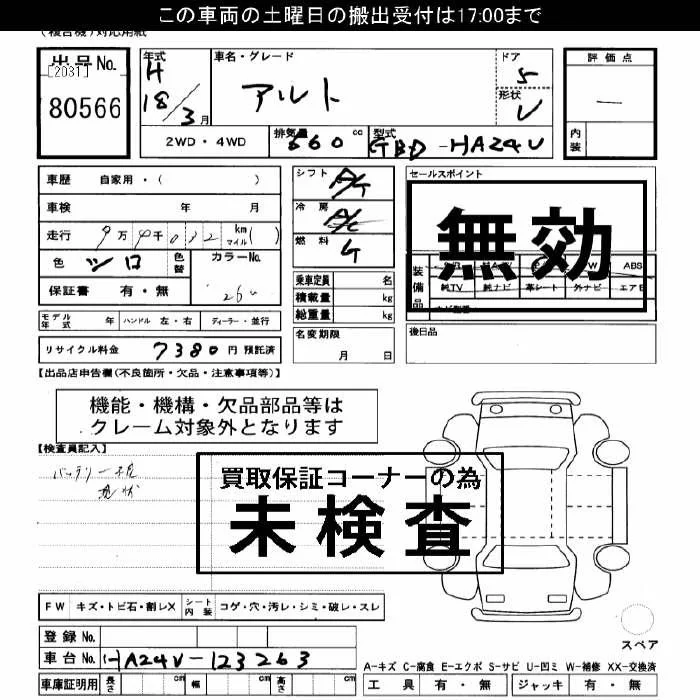 この車両の土曜日の搬出受付は17:00まで
(複合機)対応用紙
出品No.
[2031]
80566
年式
H
18/3月
車名・グレード
アルト
ドア
5
形状
V
評価点
—
内装
2WD・4WD
排気量 660 cc
型式 GBD-HA24V
車歴 自家用・( )
車検 年 月
走行 9万9千032 km マイル( )
色 シロ 色替 カラーNo.
26U
保証書 有・無
シフト A/T
冷房 A/C
燃料 G
乗車定員 名
積載量 kg
総重量 kg
セールスポイント
無効
装備品
ABS
純TV 純ナビ 革シート 外ナビ エアB
モデル年式 年 ハンドル 左・右 ディーラー・並行
名変期限
月 日
後日品
リサイクル料金 7380円 預託済
【出品店申告欄(不良箇所・欠品・注意事項等)】
機能・機構・欠品部品等は
クレーム対象外となります
【検査員記入】
バッテリー
現状
買取保証コーナーの為
未検査
FW キズ・トビ石・割レX シート内装 コゲ・穴・汚レ・シミ・破レ・スレ
スペア
登録No.
車台No. HA24V-123263
A-キズ C-腐食 E-エクボ S-サビ U-凹ミ W-補修 XX-交換済
車庫証明用 長さ cm 幅 cm 高さ cm
工具 有・無 ジャッキ 有・無